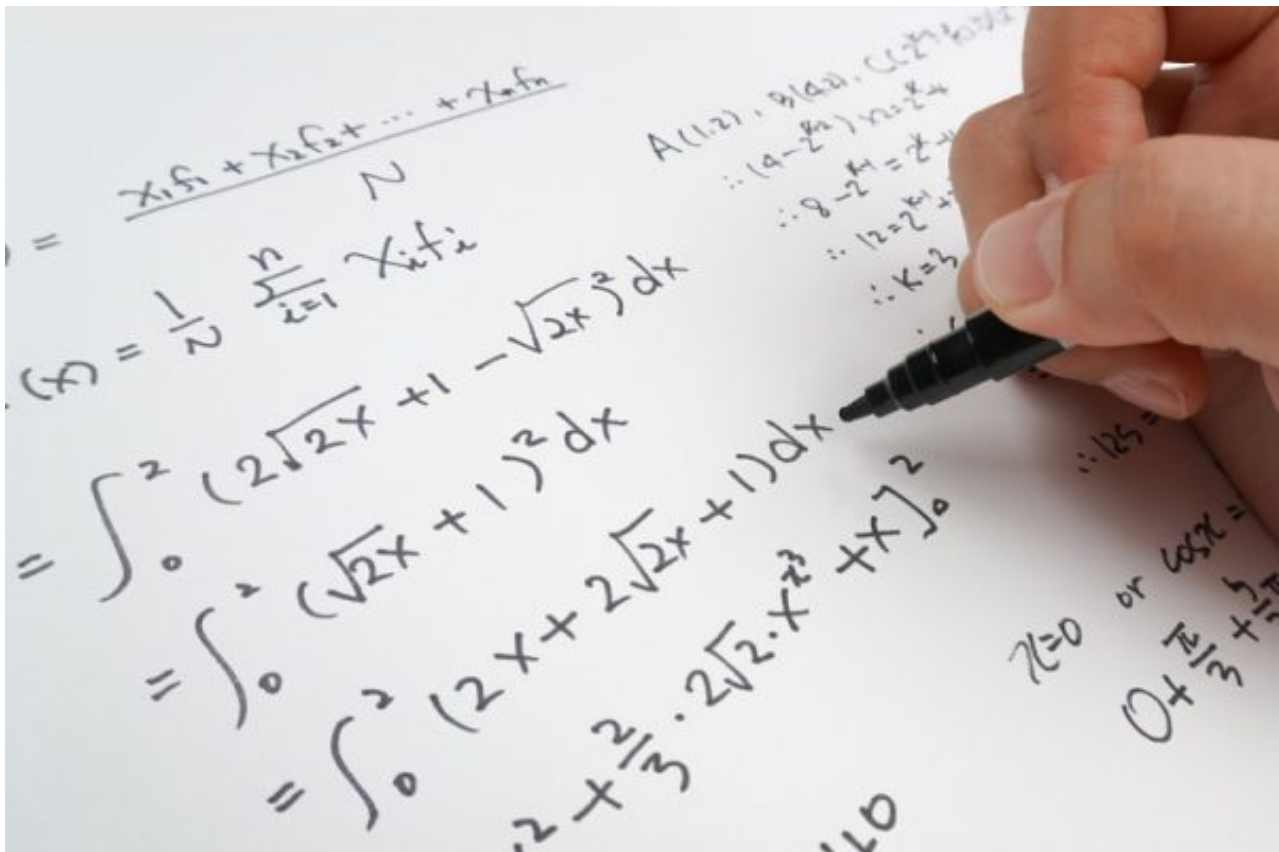 = x₁f₁ + x₂f₂ + ... + xₙfₙ / N
(x) = 1/N n Σ i=1 xᵢfᵢ
= ∫₀² (2√2x + 1 - √2x)² dx
= ∫₀² (√2x + 1)² dx
= ∫₀² (2x + 2√2x + 1) dx
² + 2/3 · 2√2 · x^x³ + x]₀²
A(1,2), B(4,2),
∴ (4-2
∴ 8-2ᴷ⁻¹ = 2ᴷ-4
∴ 12=2ᴷ⁻¹+
∴ K=3
∴ 125 =
x=0 or cosx =
0 + π/3 +